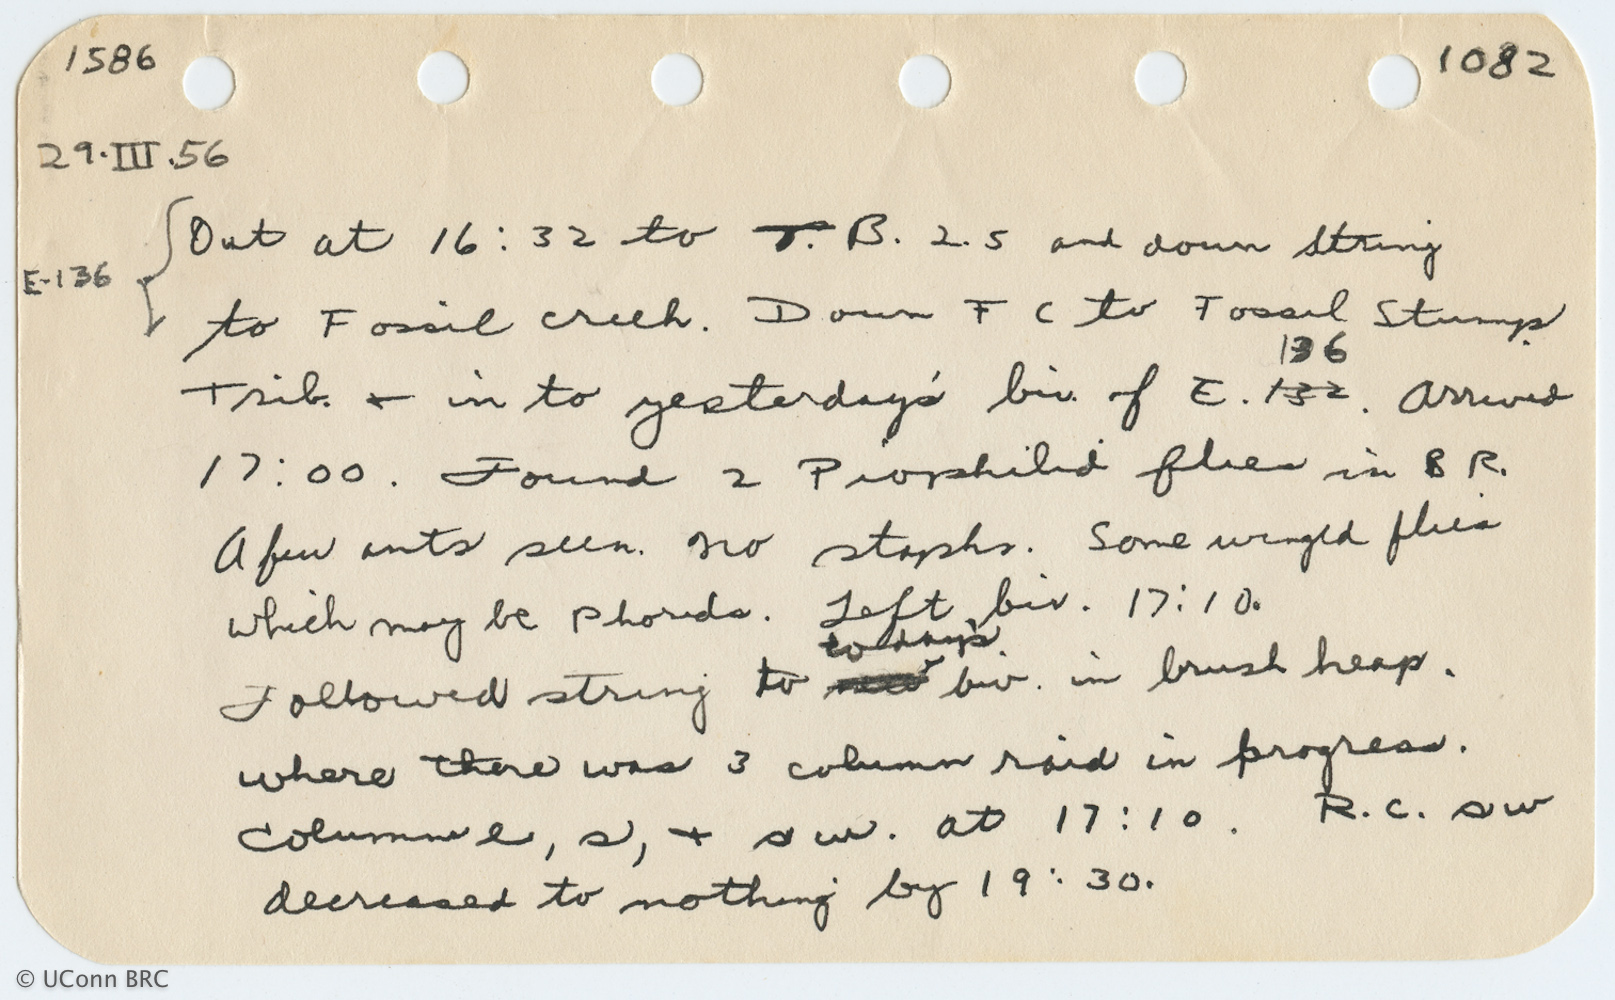 1586 1082
29.III.56
Out at 16:32 to T. B. 2.5 and down string
E-136
to Fossil creek. Down F C to Fossil Stump
136
Trib. + in to yesterday's biv. of E. 132. Arrived
17:00. Found 2 Piophilid flies in B R.
A few ants seen. No staphs. Some winged flies
which may be Phorids. Left biv. 17:10.
today's
Followed string to new biv. in brush heap.
where there was 3 column raid in progress.
Column e, s, + sw. at 17:10. R.C. sw
decreased to nothing by 19:30.
© UConn BRC